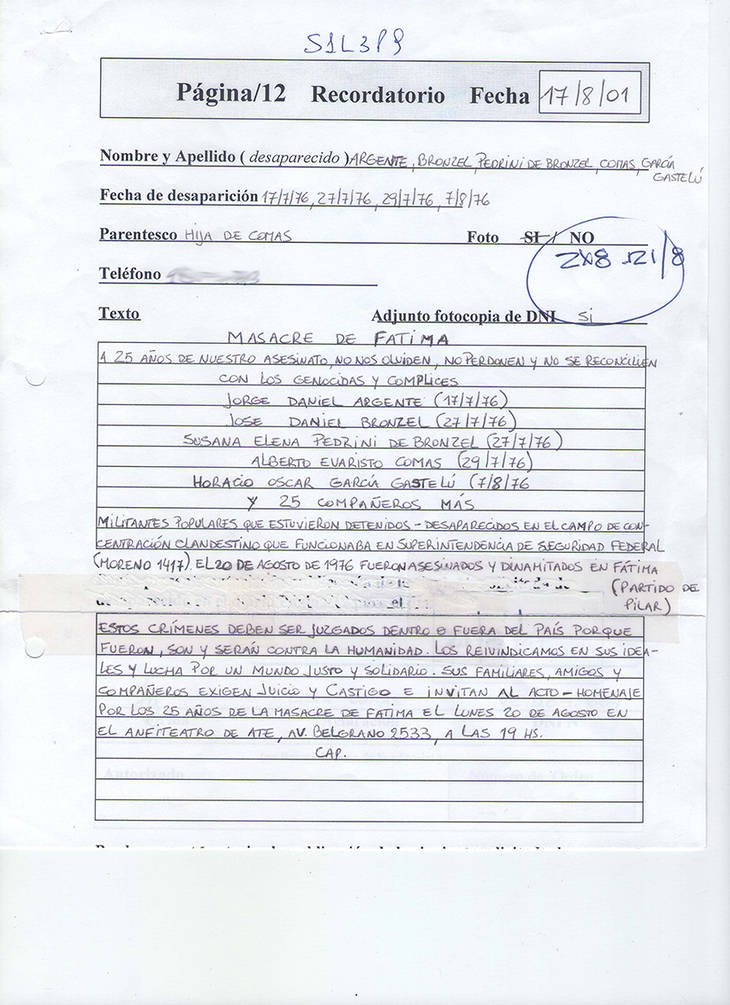 S1L3P9
Página/12 Recordatorio Fecha 17/8/01
Nombre y Apellido ( desaparecido ) ARGENTE, BRONZEL, PEDRINI DE BRONZEL, COMAS, GARCÍA
GASTELÚ
Fecha de desaparición 17/7/76, 27/7/76, 29/7/76, 7/8/76
Parentesco HIJA DE COMAS Foto SI / NO
2x8 121/8
Teléfono
Texto Adjunto fotocopia de DNI Si
MASACRE DE FATIMA
A 25 AÑOS DE NUESTRO ASESINATO, NO NOS OLVIDEN, NO PERDONEN Y NO SE RECONCILIEN
CON LOS GENOCIDAS Y COMPLICES
JORGE DANIEL ARGENTE (17/7/76)
JOSE DANIEL BRONZEL (27/7/76)
SUSANA ELENA PEDRINI DE BRONZEL (27/7/76)
ALBERTO EVARISTO COMAS (29/7/76)
HORACIO OSCAR GARCÍA GASTELÚ (7/8/76
Y 25 COMPAÑEROS MÁS
MILITANTES POPULARES QUE ESTUVIERON DETENIDOS - DESAPARECIDOS EN EL CAMPO DE CON-
CENTRACIÓN CLANDESTINO QUE FUNCIONABA EN SUPERINTENDENCIA DE SEGURIDAD FEDERAL
(MORENO 1417) EL 20 DE AGOSTO DE 1976 FUERON ASESINADOS Y DINAMITADOS EN FÁTIMA
(PARTIDO DE
PILAR)
ESTOS CRÍMENES DEBEN SER JUZGADOS DENTRO O FUERA DEL PAÍS PORQUE
FUERON, SON Y SERÁN CONTRA LA HUMANIDAD. LOS REIVINDICAMOS EN SUS IDEA-
LES Y LUCHA POR UN MUNDO JUSTO Y SOLIDARIO. SUS FAMILIARES, AMIGOS Y
COMPAÑEROS EXIGEN JUICIO Y CASTIGO E INVITAN AL ACTO - HOMENAJE
POR LOS 25 AÑOS DE LA MASACRE DE FATIMA EL LUNES 20 DE AGOSTO EN
EL ANFITEATRO DE ATE, AV. BELGRANO 2533, A LAS 19 HS.
CAP.
Autorizado